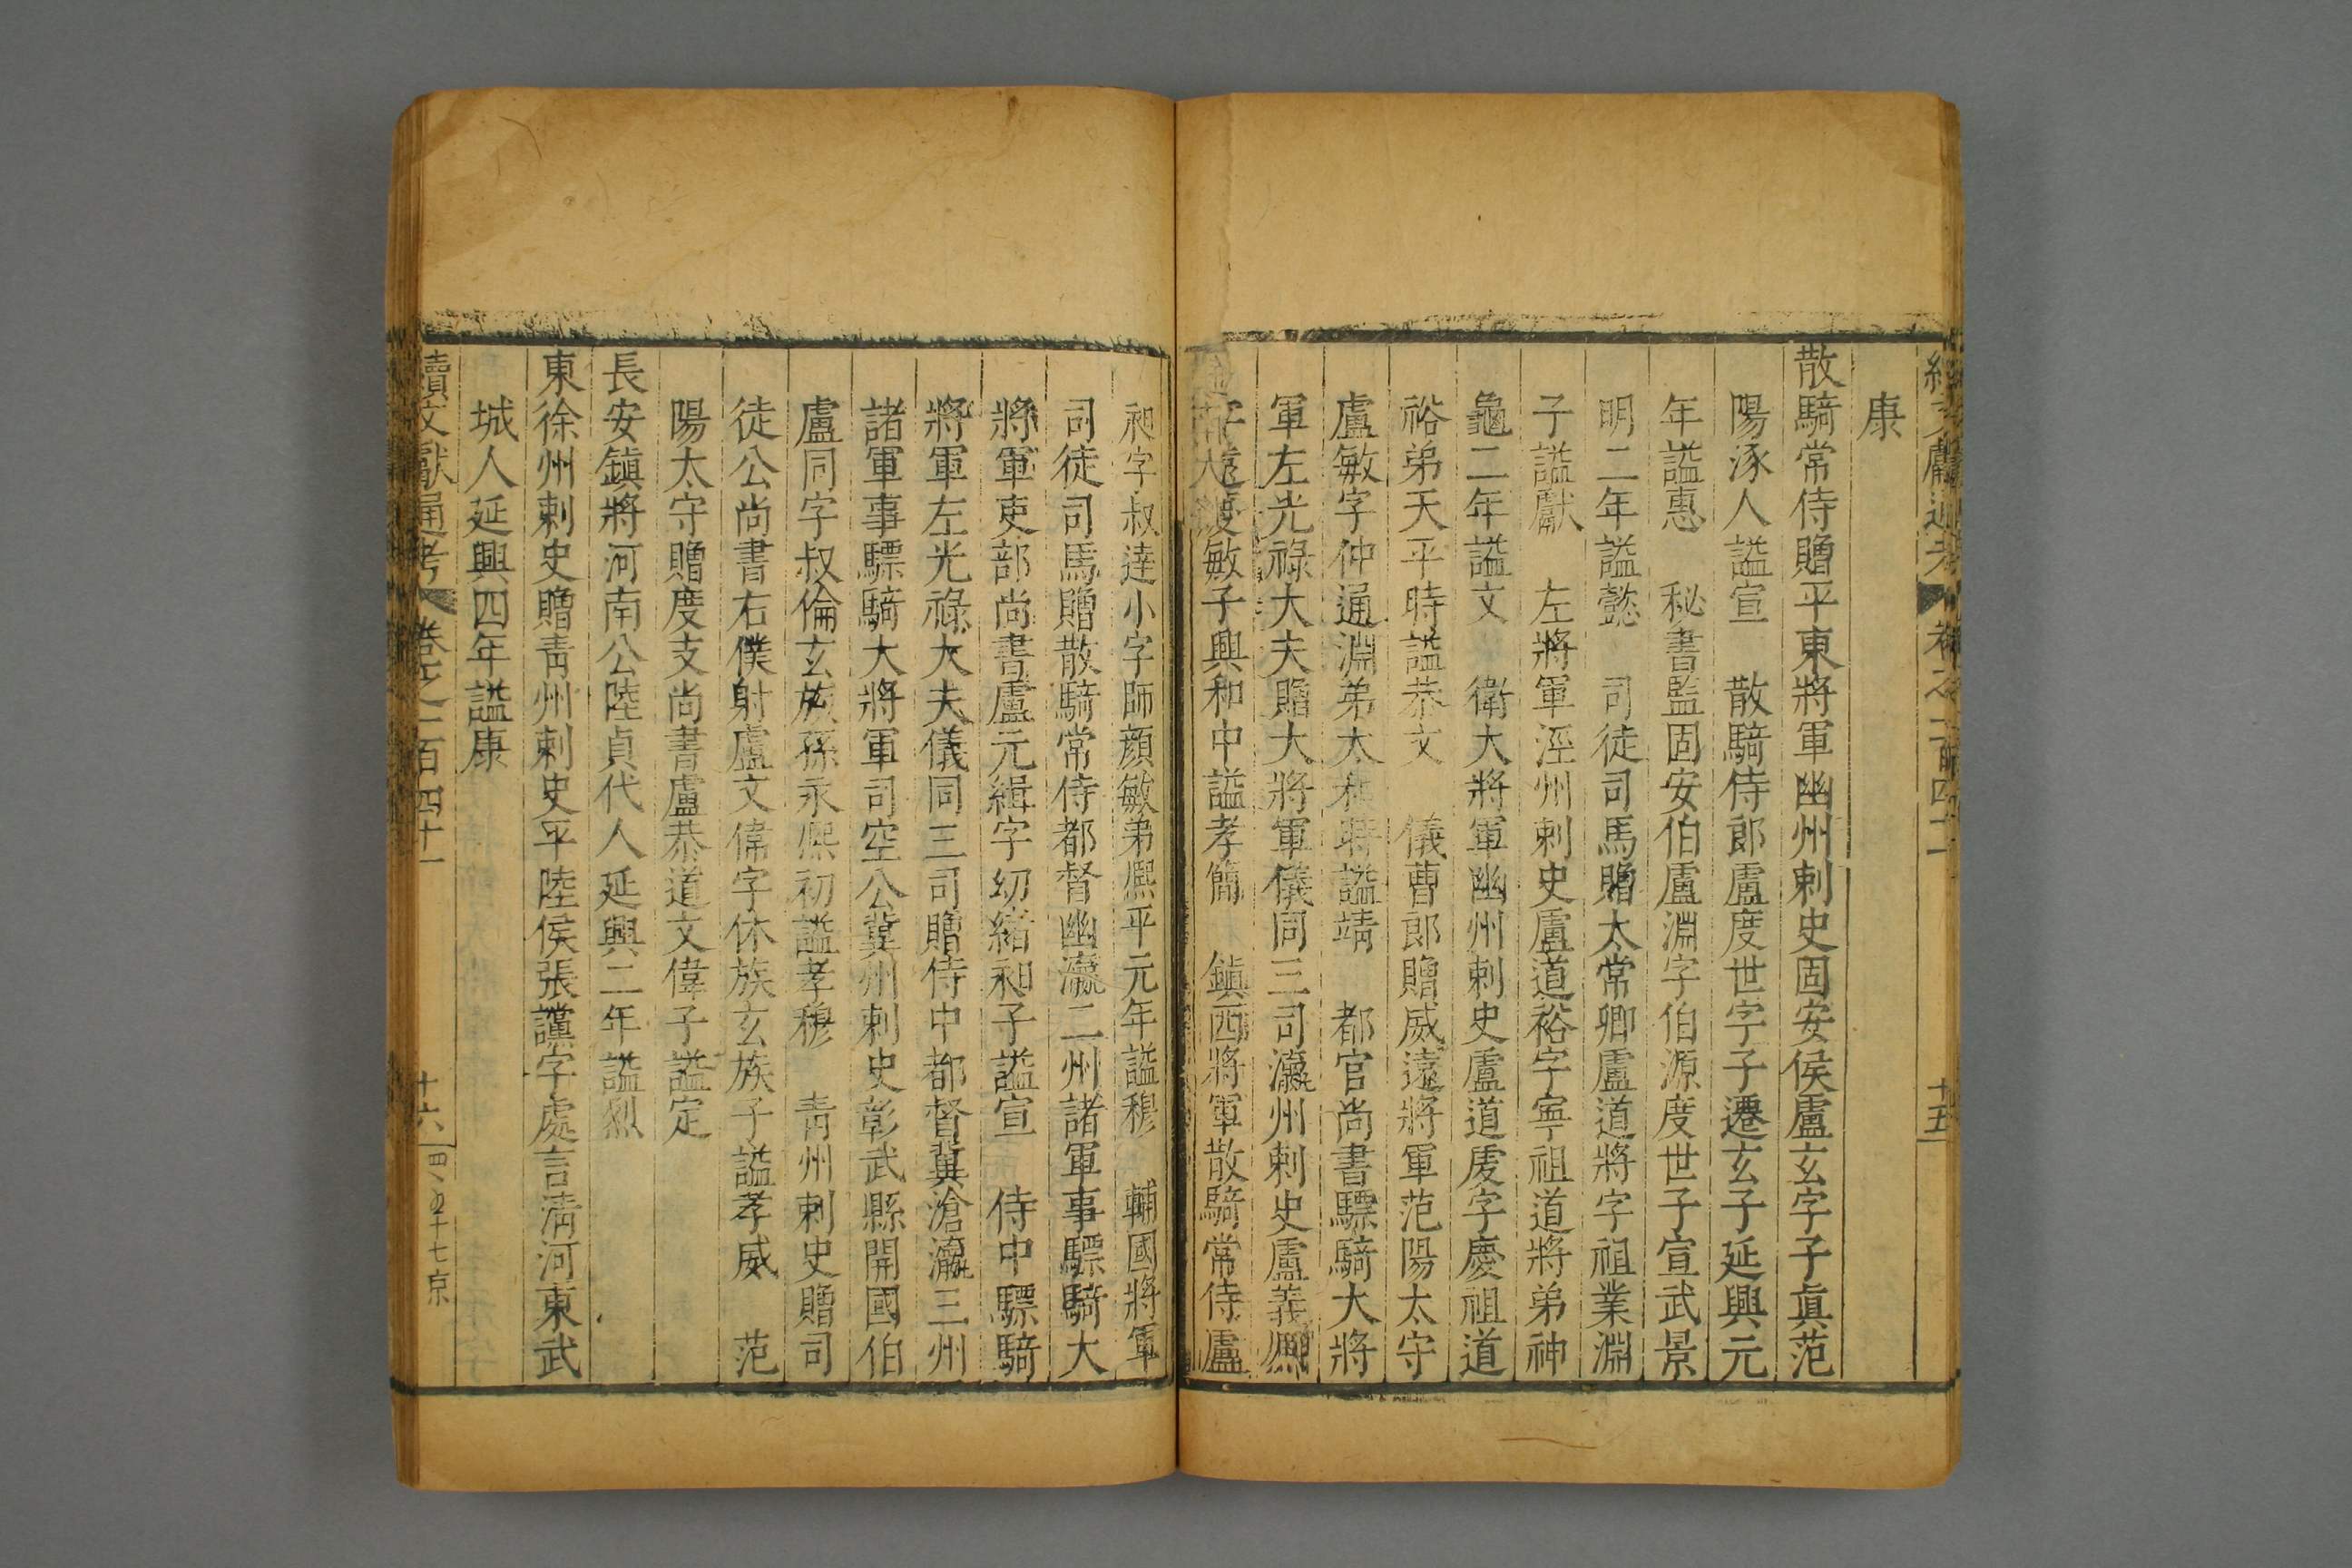 續文獻通考 卷之一百四十一 十五
康
散騎常侍贈平東將軍幽州刺史固安侯盧玄字子眞范
陽涿人諡宣 散騎侍郎盧度世字子遷玄子延興元
年諡惠 秘書監固安伯盧淵字伯源度世子宣武景
明二年諡懿 司徒司馬贈太常卿盧道將字祖業淵
子諡獻 左將軍涇州刺史盧道裕字寧祖道將弟神
龜二年諡文 衛大將軍幽州刺史盧道虔字慶祖道
裕弟天平時諡恭文 儀曹郎贈威遠將軍范陽太守
盧敏字仲通淵弟太和時諡靖 都官尚書驃騎大將
軍左光祿大夫贈大將軍儀同三司瀛州刺史盧義熈
字遠慶敏子興和中諡孝簡 鎮西將軍散騎常侍盧
昶字叔達小字師顔敏弟熈平元年諡穆 輔國將軍
司徒司馬贈散騎常侍都督幽瀛二州諸軍事驃騎大
將軍吏部尚書盧元緝字幼緒昶子諡宣 侍中驃騎
將軍左光祿大夫儀同三司贈侍中都督冀滄瀛三州
諸軍事驃騎大將軍司空公冀州刺史彰武縣開國伯
盧同字叔倫玄族孫永熈初諡孝穆 青州刺史贈司
徒公尚書右僕射盧文偉字休族玄族子諡孝威 范
陽太守贈度支尚書盧恭道文偉子諡定
長安鎮將河南公陸貞代人延興二年諡烈
東徐州刺史贈靑州刺史平陸侯張讜字處言淸河東武
城人延興四年諡康
續文獻通考 卷之一百四十一 十六 四 十七京